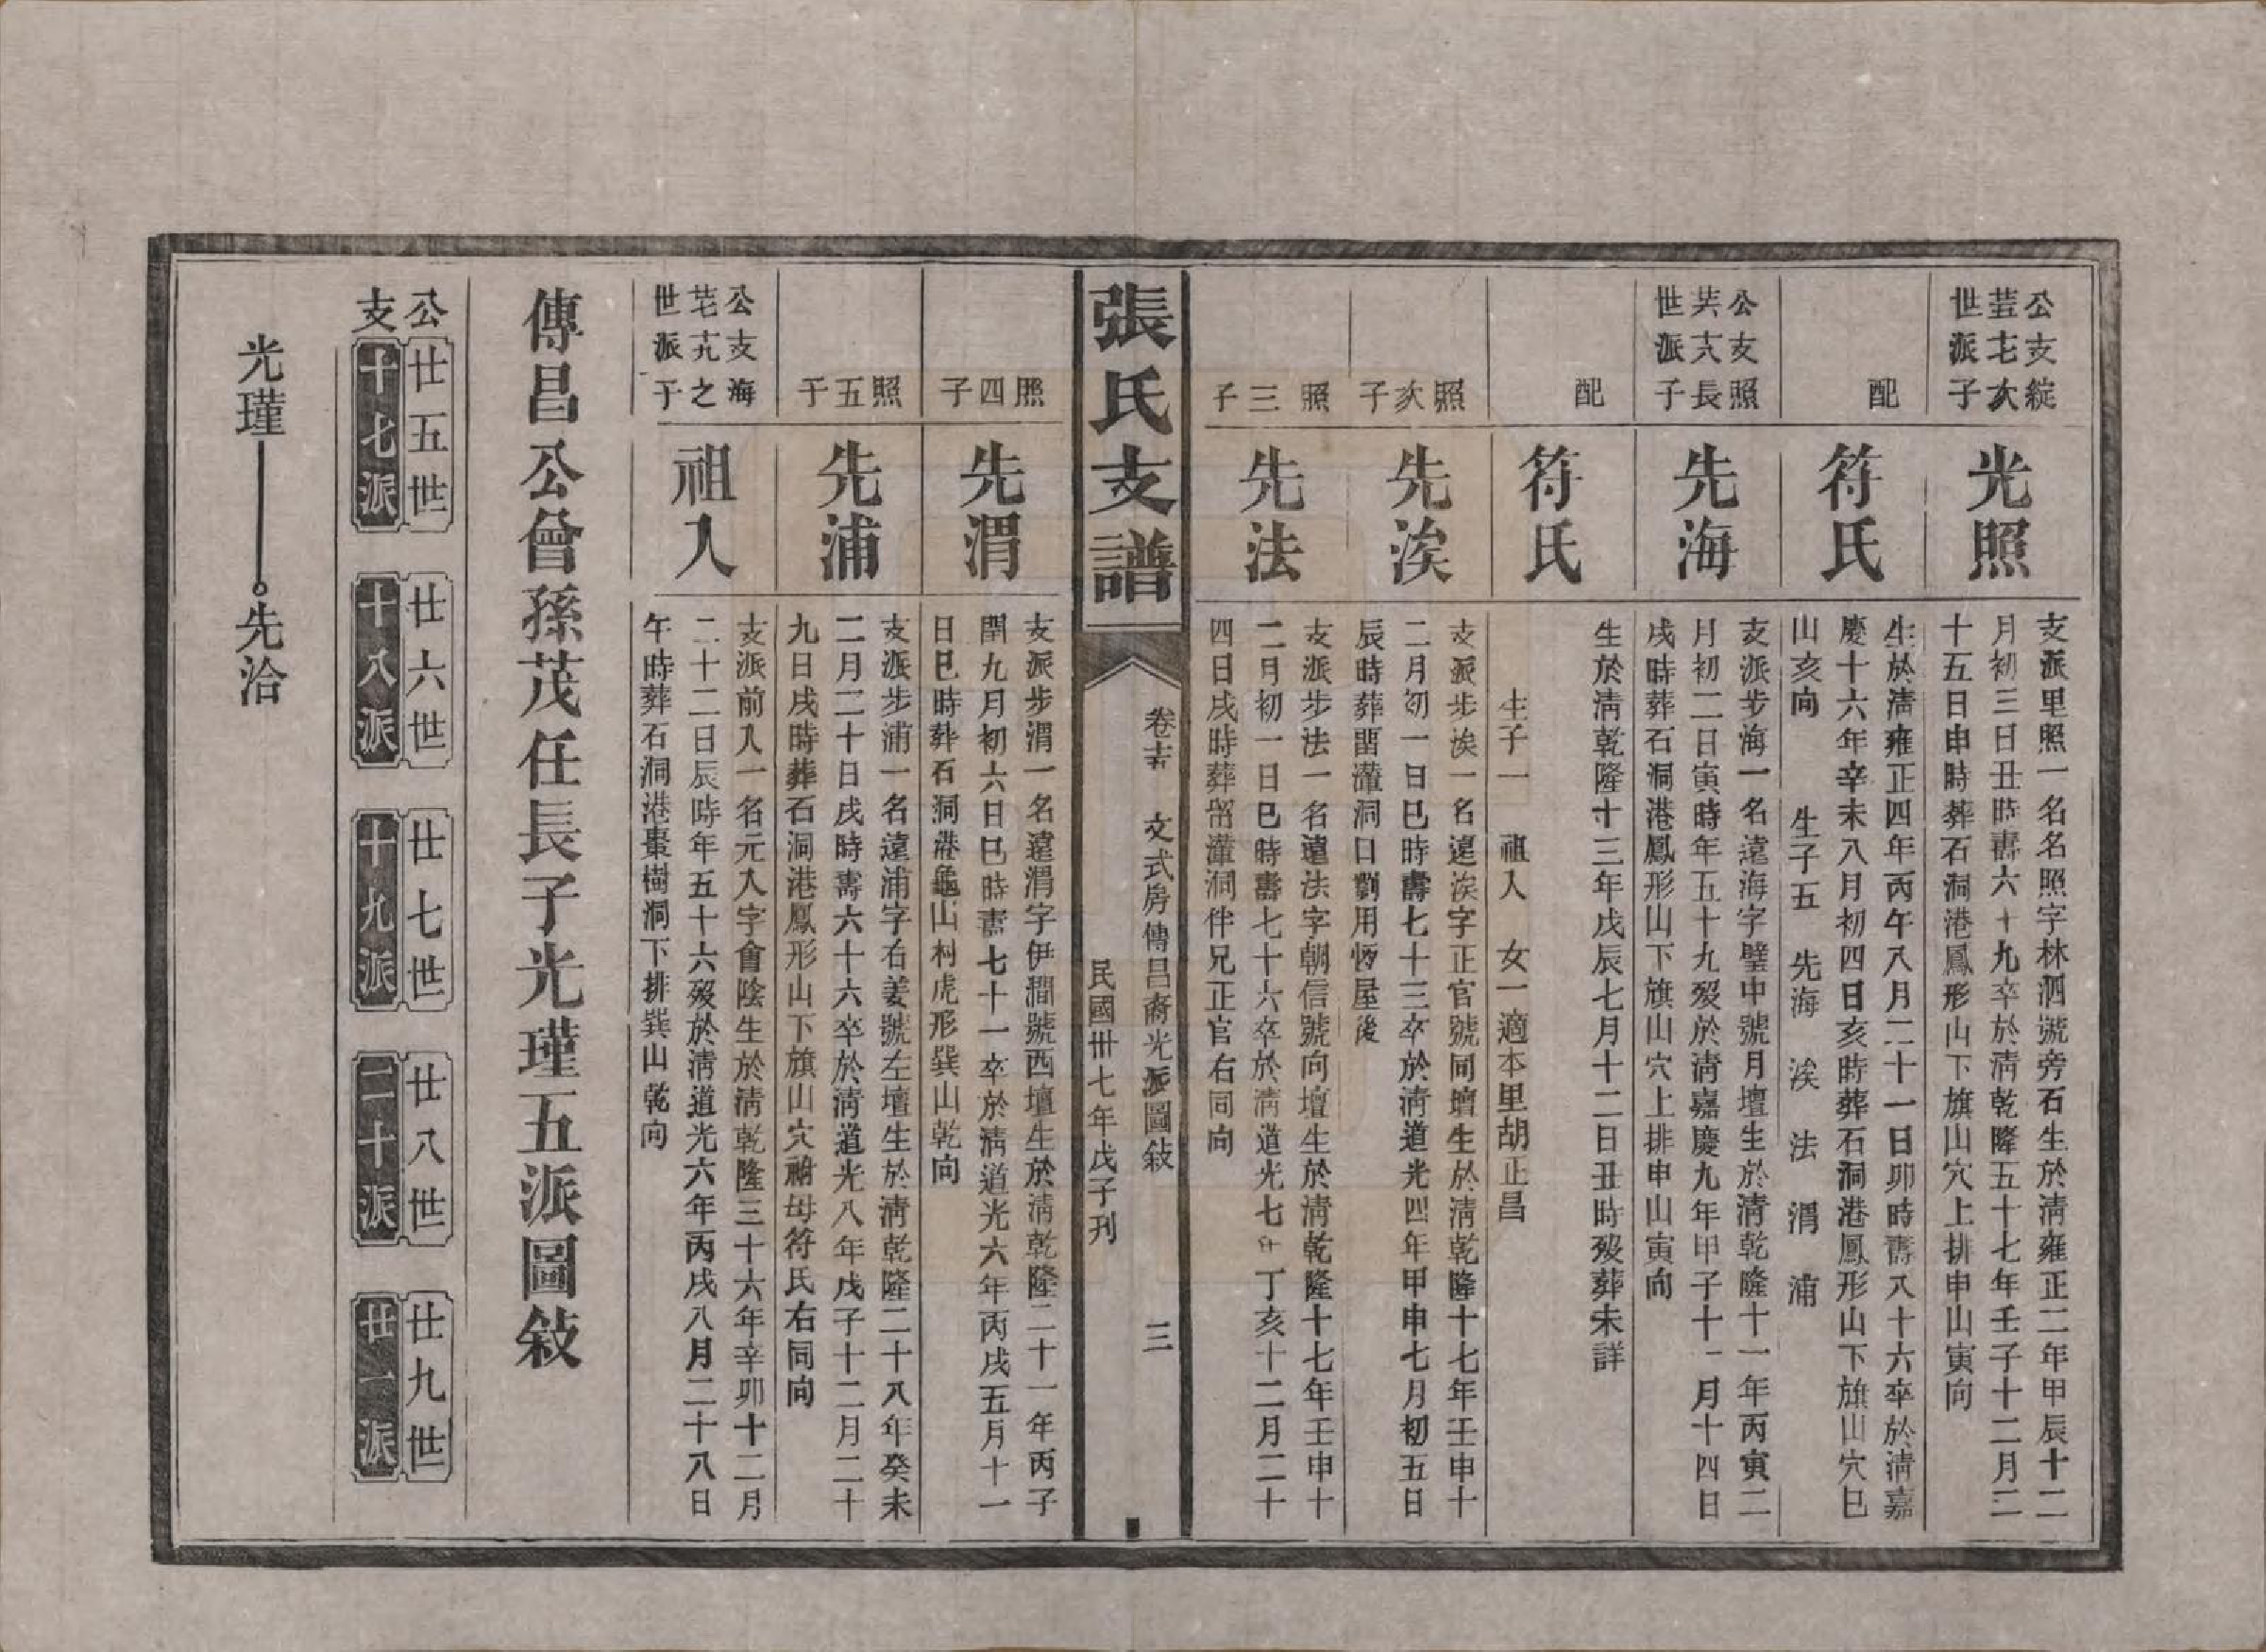 公支綻
荁七次
世派子
光照
支派里照一名名照字林泗號旁石生於淸雍正二年甲辰十二
月初三日丑時壽六十九卒於淸乾隆五十七年壬子十二月二
十五日申時葬石洞港鳳形山下旗山穴上排申山寅向
配
符氏
生於淸雍正四年丙午八月二十一日卯時壽八十六卒於淸嘉
慶十六年辛未八月初四日亥時葬石洞港鳳形山下旗山穴巳
山亥向 生子五 先海 涘 法 渭 浦
公支照
大長
世派子
先海
支派步海一名遠海字璧中號月壇生於淸乾隆十一年丙寅二
月初二日寅時年五十九歿於淸嘉慶九年甲子十一月十四日
戌時葬石洞港鳳形山下旗山穴上排申山寅向
配
符氏
生於淸乾隆十三年戊辰七月十二日丑時歿葬未詳
生子一 祖入 女一適本里胡正昌
照次子
先涘
支派步涘一名遠涘字正官號同壇生於淸乾隆十七年壬申十
二月初一日巳時壽七十三卒於淸道光四年甲申七月初五日
辰時葬畱灌洞口劉用屋後
照三子
先法
支派步法一名遠法字朝信號向壇生於淸乾隆十七年壬申十
二月初一日巳時壽七十六卒於淸道光七年丁亥十二月二十
四日戌時葬畱灌洞伴兄正官右同向
張氏支譜
卷 文式房傳昌裔光派圖敍 三
民國卅七年戊子刊
照四子
先渭
支派步渭一名遠渭字伊澗號西壇生於淸乾隆二十一年丙子
閏九月初六日巳時壽七十一卒於淸道光六年丙戌五月十一
日巳時葬石洞港龜山村虎形巽山乾向
照五子
先浦
支派步浦一名遠浦字右姜號左壇生於淸乾隆二十八年癸未
二月二十日戌時壽六十六卒於淸道光八年戊子十二月二十
九日戌時葬石洞港鳳形山下旗山穴祔母符氏右同向
公支海
之
世派子
祖入
支派前入一名元入字會陰生於淸乾隆三十六年辛卯十二月
二十二日辰時年五十六歿於淸道光六年丙戌八月二十八日
午時葬石洞港棗樹洞下排巽山乾向
傳昌公曾孫茂任長子光瑾五派圖敍
公支
廿五世 廿六世 廿七世 廿八世 廿九世
十七派 十八派 十九派 二十派 廿一派
光瑾 先洽